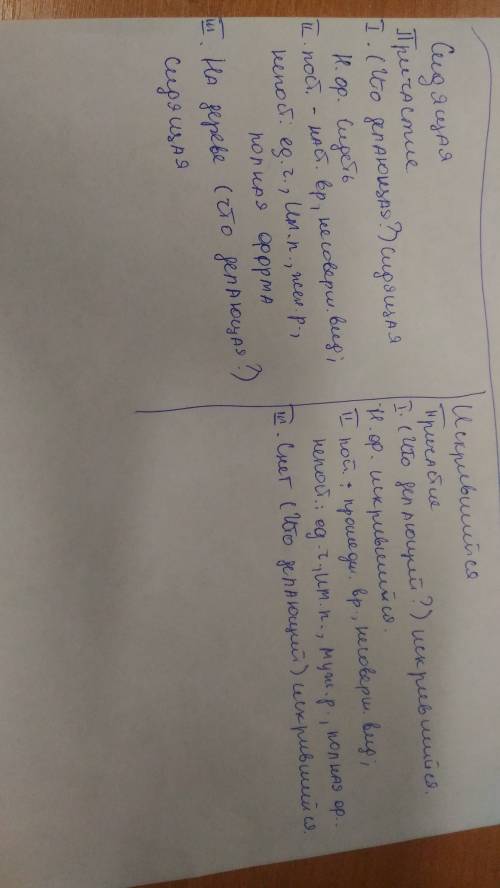 Сидящая
Причастие
I. (Что делающая?) сидящая
Н.ф. сидеть
II. пост. - наст. вр, несоверш. вид;
непост: ед.ч., Им.п., жен.р.,
полная форма
III. На дереве (что делающая?)
сидящая
Искрившийся
Причастие
I. (Что делающий?) искрившийся.
Н.ф. искрившийся.
II пост.: прошедш. вр., несоверш. вид;
непост.: ед.ч., им.п., муж.р., полная ф..
III. Снег (Что делающий) искрившийся.